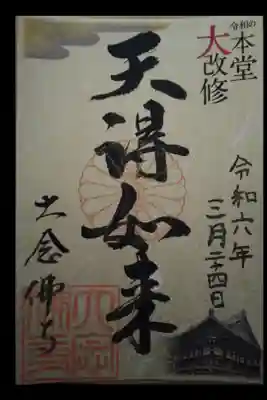 令和の
本堂
大改修
令和六年
三月二十四日
天得如来
大念佛寺